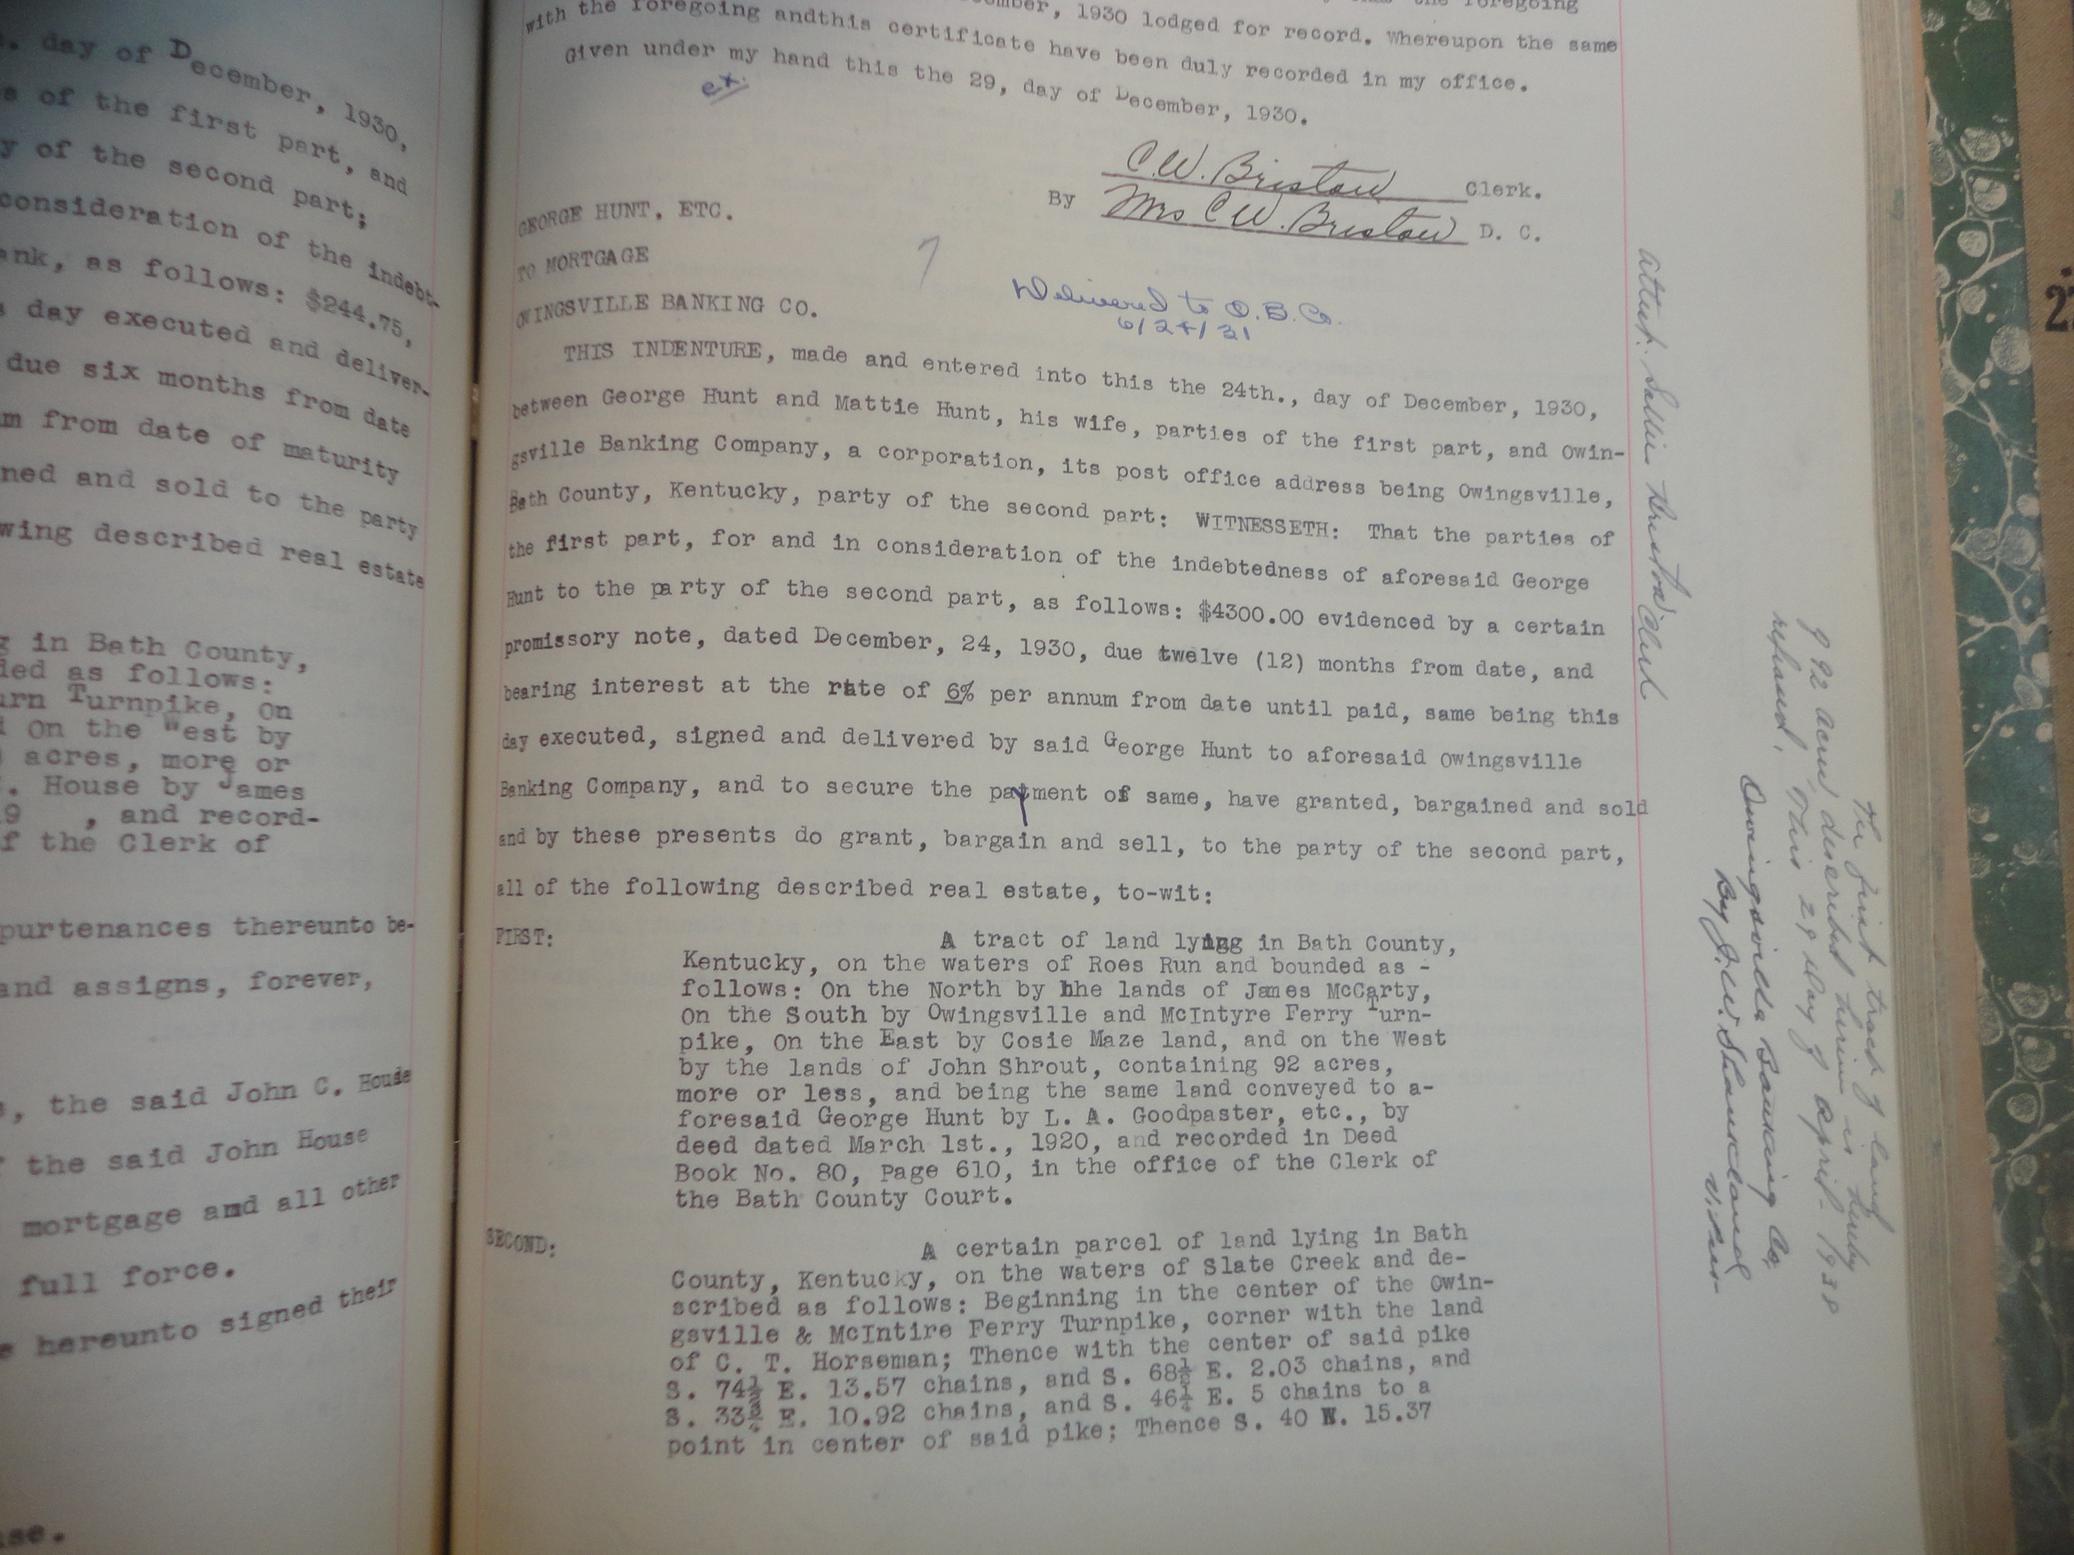 . day of December, 1930,
s of the first part, and
y of the second part;
consideration of the indebt-
ank, as follows: $244.75,
s day executed and deliver-
due six months from date
m from date of maturity
ned and sold to the party
wing described real estate
g in Bath County,
ded as follows:
urn Turnpike, On
d On the West by
acres, more or
. House by James
19 , and record-
f the Clerk of
purtenances thereunto be-
and assigns, forever,
s, the said John C. House
the said John House
mortgage and all other
full force.
e hereunto signed their
use.
ember, 1930 lodged for record. Whereupon the same
with the foregoing andthis certificate have been duly recorded in my office.
Given under my hand this the 29, day of December, 1930.
ex.
C.W. Bristow Clerk.
By Mrs C W. Bristow D. C.
GEORGE HUNT, ETC.
TO MORTGAGE
OWINGSVILLE BANKING CO.
Delivered to O.B.Co.
6/24/31
THIS INDENTURE, made and entered into this the 24th., day of December, 1930,
between George Hunt and Mattie Hunt, his wife, parties of the first part, and Owin-
gsville Banking Company, a corporation, its post office address being Owingsville,
Bath County, Kentucky, party of the second part: WITNESSETH: That the parties of
the first part, for and in consideration of the indebtedness of aforesaid George
Hunt to the party of the second part, as follows: $4300.00 evidenced by a certain
promissory note, dated December, 24, 1930, due twelve (12) months from date, and
bearing interest at the rate of 6% per annum from date until paid, same being this
day executed, signed and delivered by said George Hunt to aforesaid Owingsville
Banking Company, and to secure the payment of same, have granted, bargained and sold
and by these presents do grant, bargain and sell, to the party of the second part,
all of the following described real estate, to-wit:
FIRST: A tract of land lying in Bath County,
Kentucky, on the waters of Roes Run and bounded as -
follows: On the North by hhe lands of James McCarty,
On the South by Owingsville and McIntyre Ferry Turn-
pike, On the East by Cosie Maze land, and on the West
by the lands of John Shrout, containing 92 acres,
more or less, and being the same land conveyed to a-
foresaid George Hunt by L. A. Goodpaster, etc., by
deed dated March 1st., 1920, and recorded in Deed
Book No. 80, Page 610, in the office of the Clerk of
the Bath County Court.
SECOND: A certain parcel of land lying in Bath
County, Kentucky, on the waters of Slate Creek and de-
scribed as follows: Beginning in the center of the Owin-
gsville & McIntire Ferry Turnpike, corner with the land
of C. T. Horseman; Thence with the center of said pike
S. 74½ E. 13.57 chains, and S. 68½ E. 2.03 chains, and
S. 33¾ E. 10.92 chains, and S. 46¼ E. 5 chains to a
point in center of said pike; Thence S. 40 W. 15.37
The first track of land
of 92 acres, described herein is hereby
released, This 29 day of April 1938
Owingsville Banking Co,
By J.W.
V. Pres-
attest: Sallie Clerk